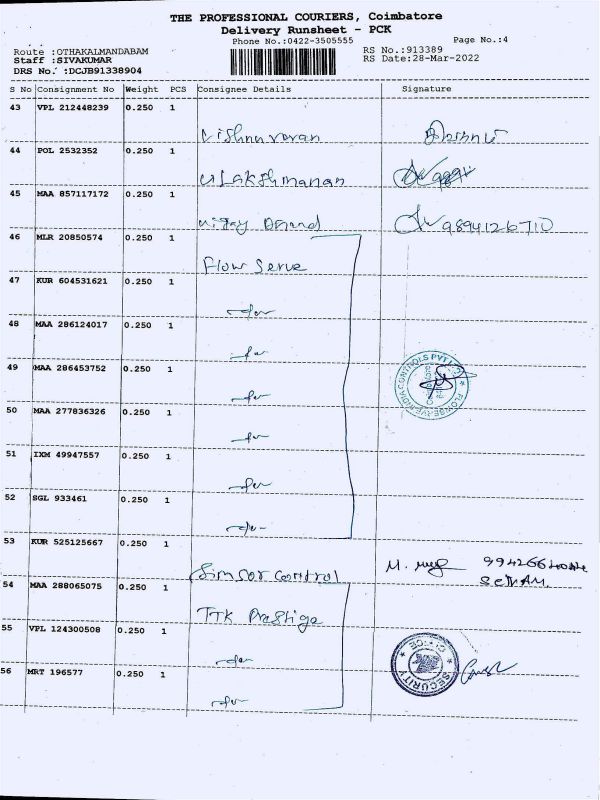 THE PROFESSIONAL COURIERS, Coimbatore
Delivery Runsheet - PCK
Phone No.:0422-3505555 Page No.:4
Route :OTHAKALMANDABAM RS No.:913389
Staff :SIVAKUMAR RS Date:28-Mar-2022
DRS No. :DCJB91338904
S No Consignment No Weight PCS Consignee Details Signature
43 VPL 212448239 0.250 1
Vishnuvaran
44 POL 2532352 0.250 1
U Lakshmanan
45 MAA 857117172 0.250 1
Vijay Anand 9894126710
46 MLR 20850574 0.250 1
Flow Serve
47 KUR 604531621 0.250 1
48 MAA 286124017 0.250 1
49 MAA 286453752 0.250 1
50 MAA 277836326 0.250 1
51 IXM 49947557 0.250 1
52 SGL 933461 0.250 1
53 KUR 525125667 0.250 1
Control
54 MAA 288065075 0.250 1
TTK Prestige
55 VPL 124300508 0.250 1
SECURITY
56 MRT 196577 0.250 1